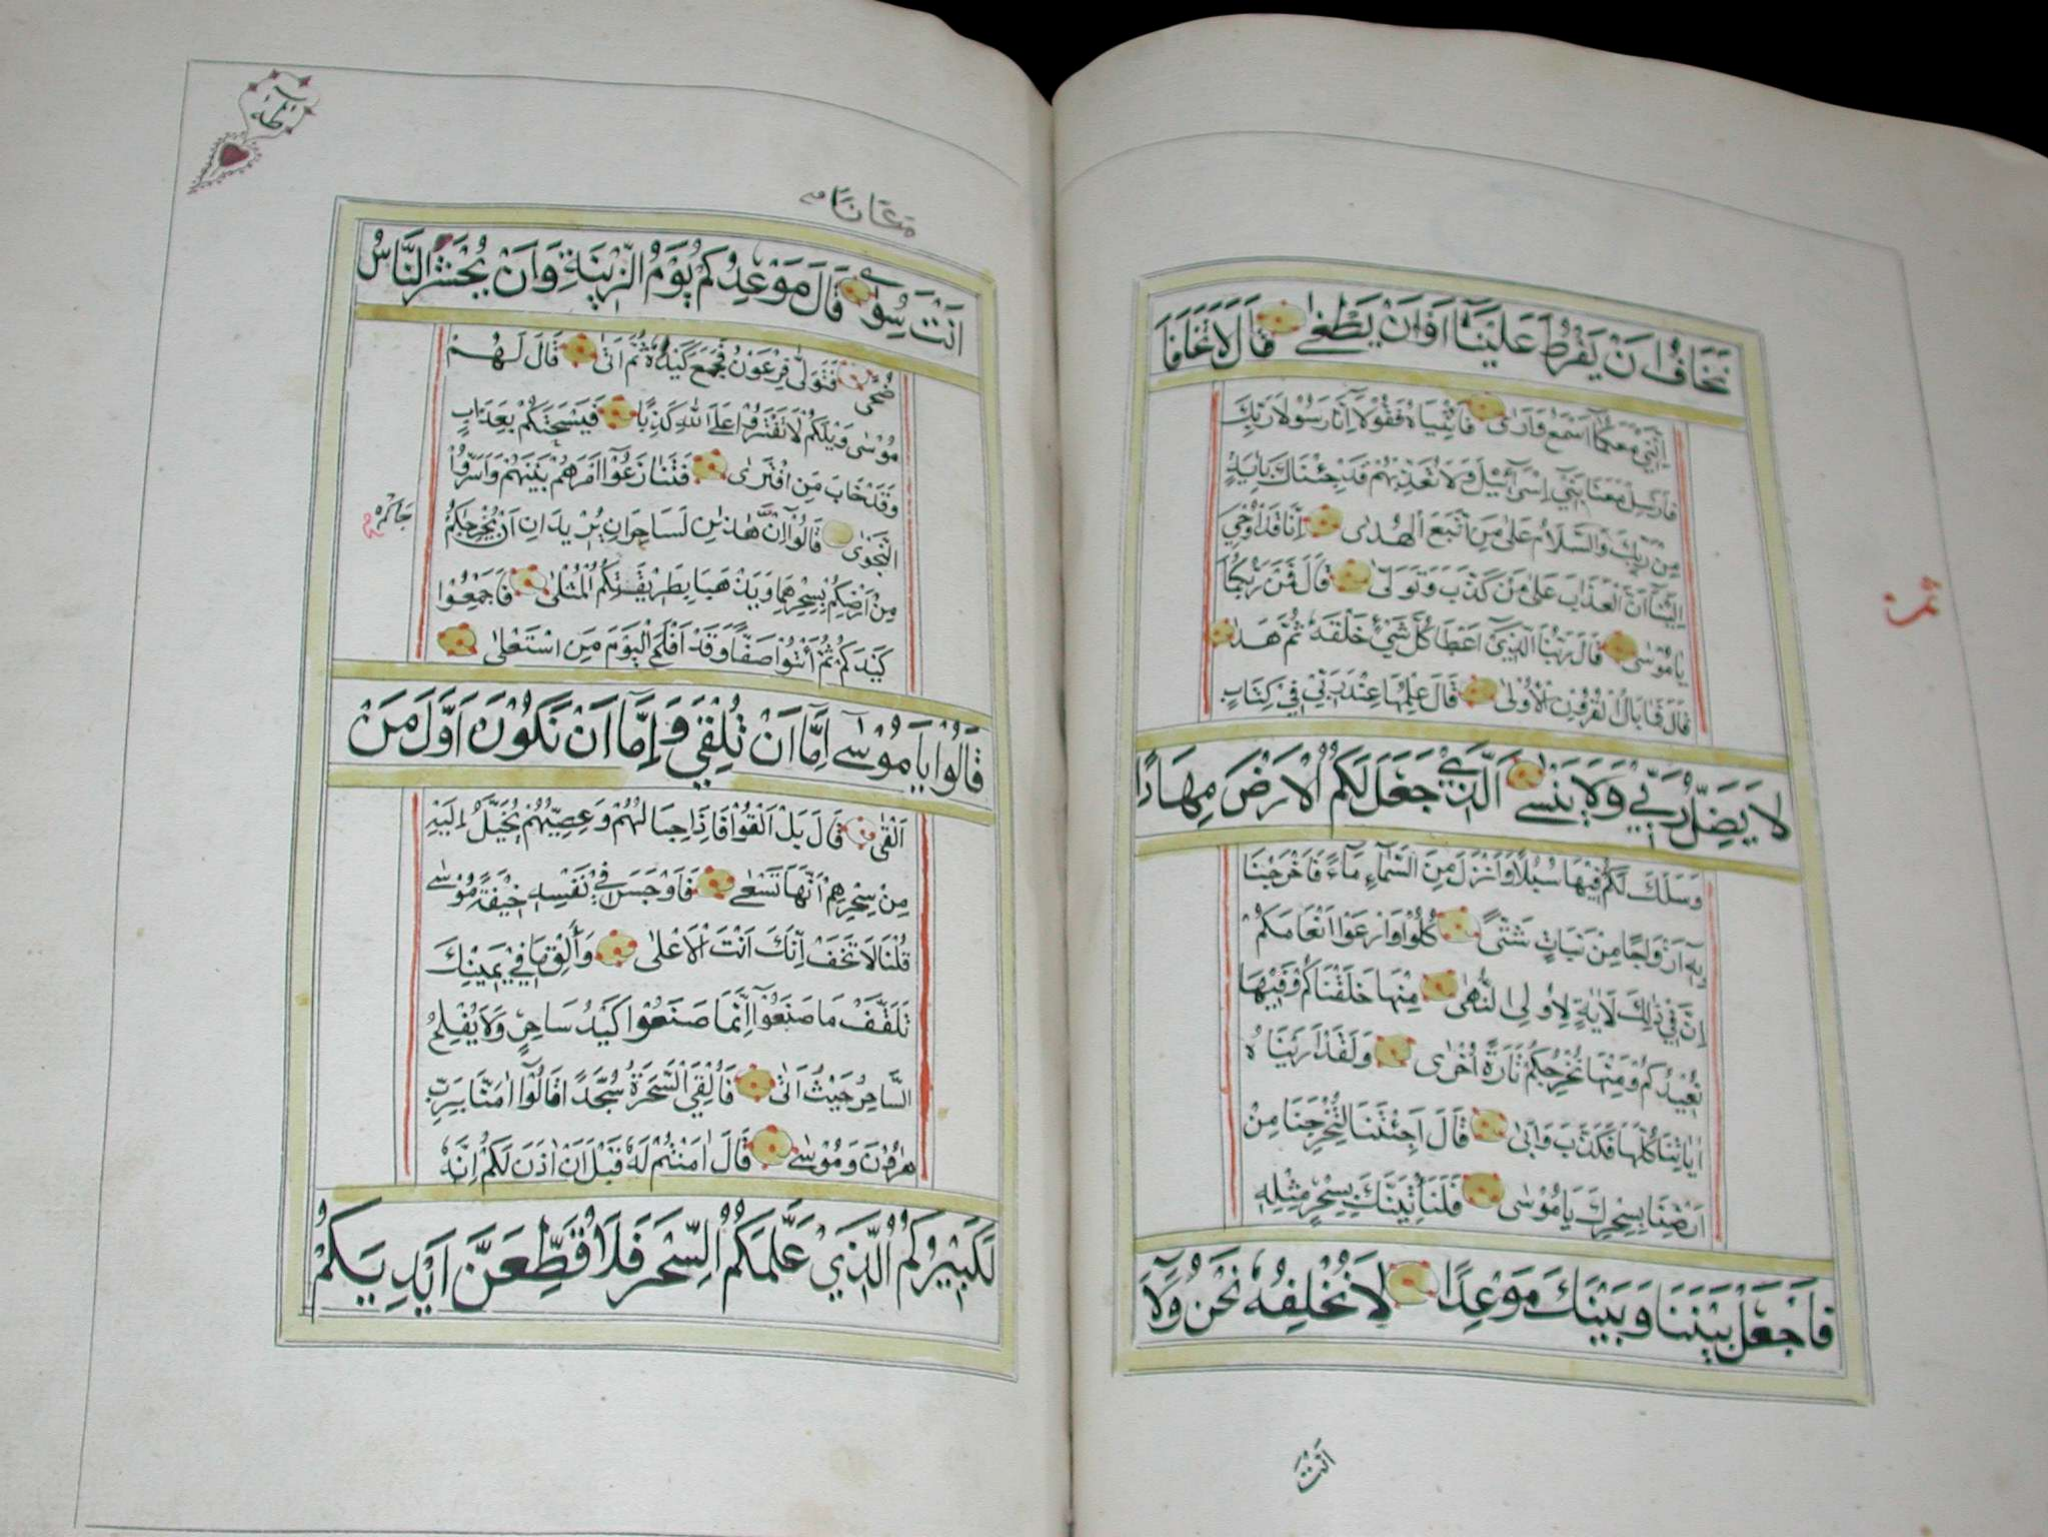 نَخَافُ اَنْ يَفْرُطَ عَلَيْنَآ اَوْ اَنْ يَطْغٰى قَالَ لَا تَخَافَا
اِنَّنِي مَعَكُمَآ اَسْمَعُ وَاَرٰى فَاْتِيَاهُ فَقُولَا اِنَّا رَسُولَا رَبِّكَ
فَاَرْسِلْ مَعَنَا بَنِٓي اِسْرَآئِيلَ وَلَا تُعَذِّبْهُمْ قَدْ جِئْنَاكَ بِاٰيَةٍ
مِنْ رَبِّكَ وَالسَّلَامُ عَلٰى مَنِ اتَّبَعَ الْهُدٰى اِنَّا قَدْ اُوحِيَ
اِلَيْنَآ اَنَّ الْعَذَابَ عَلٰى مَنْ كَذَّبَ وَتَوَلّٰى قَالَ فَمَنْ رَبُّكُمَا
يَا مُوسٰى قَالَ رَبُّنَا الَّذِٓي اَعْطٰا كُلَّ شَيْءٍ خَلْقَهُ ثُمَّ هَدٰى
قَالَ فَمَا بَالُ الْقُرُونِ الْاُولٰى قَالَ عِلْمُهَا عِنْدَ رَبِّي فِي كِتَابٍ
لَا يَضِلُّ رَبِّي وَلَا يَنْسٰى اَلَّذِي جَعَلَ لَكُمُ الْاَرْضَ مِهَادًا
وَسَلَكَ لَكُمْ فِيهَا سُبُلًا وَاَنْزَلَ مِنَ السَّمَآءِ مَآءً فَاَخْرَجْنَا
بِهِٓ اَزْوَاجًا مِنْ نَبَاتٍ شَتّٰى كُلُوا وَارْعَوْا اَنْعَامَكُمْ
اِنَّ فِي ذٰلِكَ لَاٰيَاتٍ لِاُولِي النُّهٰى مِنْهَا خَلَقْنَاكُمْ وَفِيهَا
نُعِيدُكُمْ وَمِنْهَا نُخْرِجُكُمْ تَارَةً اُخْرٰى وَلَقَدْ اَرَيْنَاهُ
اٰيَاتِنَا كُلَّهَا فَكَذَّبَ وَاَبٰى قَالَ اَجِئْتَنَا لِتُخْرِجَنَا مِنْ
اَرْضِنَا بِسِحْرِكَ يَا مُوسٰى فَلَنَأْتِيَنَّكَ بِسِحْرٍ مِثْلِهِ
فَاجْعَلْ بَيْنَنَا وَبَيْنَكَ مَوْعِدًا لَا نُخْلِفُهُ نَحْنُ وَلَآ
اَنْتَ
ثمن
طٰهٰ
اَنْتَ سُوًى قَالَ مَوْعِدُكُمْ يَوْمُ الزِّينَةِ وَاَنْ يُحْشَرَ النَّاسُ
ضُحًى فَتَوَلّٰى فِرْعَوْنُ فَجَمَعَ كَيْدَهُ ثُمَّ اَتٰى قَالَ لَهُمْ
مُوسٰى وَيْلَكُمْ لَا تَفْتَرُوا عَلَى اللّٰهِ كَذِبًا فَيُسْحِتَكُمْ بِعَذَابٍ
وَقَدْ خَابَ مَنِ افْتَرٰى فَتَنَازَعُوٓا اَمْرَهُمْ بَيْنَهُمْ وَاَسَرُّوا
النَّجْوٰى قَالُوٓا اِنَّ هٰذٰنِ لَسَاحِرَانِ يُرِيدَانِ اَنْ يُخْرِجَاكُمْ
مِنْ اَرْضِكُمْ بِسِحْرِهِمَا وَيَذْهَبَا بِطَرِيقَتِكُمُ الْمُثْلٰى فَاَجْمِعُوا
كَيْدَكُمْ ثُمَّ ائْتُوا صَفًّا وَقَدْ اَفْلَحَ الْيَوْمَ مَنِ اسْتَعْلٰى
قَالُوا يَا مُوسٰٓى اِمَّآ اَنْ تُلْقِيَ وَاِمَّآ اَنْ نَكُونَ اَوَّلَ مَنْ
اَلْقٰى قَالَ بَلْ اَلْقُوا فَاِذَا حِبَالُهُمْ وَعِصِيُّهُمْ يُخَيَّلُ اِلَيْهِ
مِنْ سِحْرِهِمْ اَنَّهَا تَسْعٰى فَاَوْجَسَ فِي نَفْسِهِ خِيفَةً مُوسٰى
قُلْنَا لَا تَخَفْ اِنَّكَ اَنْتَ الْاَعْلٰى وَأَلْقِ مَا فِي يَمِينِكَ
تَلْقَفْ مَا صَنَعُوٓا اِنَّمَا صَنَعُوا كَيْدُ سَاحِرٍ وَلَا يُفْلِحُ
السَّاحِرُ حَيْثُ اَتٰى فَاُلْقِيَ السَّحَرَةُ سُجَّدًا قَالُوٓا اٰمَنَّا بِرَبِّ
هٰرُونَ وَمُوسٰى قَالَ اٰمَنْتُمْ لَهُ قَبْلَ اَنْ اٰذَنَ لَكُمْ اِنَّهُ
لَكَبِيرُكُمُ الَّذِي عَلَّمَكُمُ السِّحْرَ فَلَاُقَطِّعَنَّ اَيْدِيَكُمْ